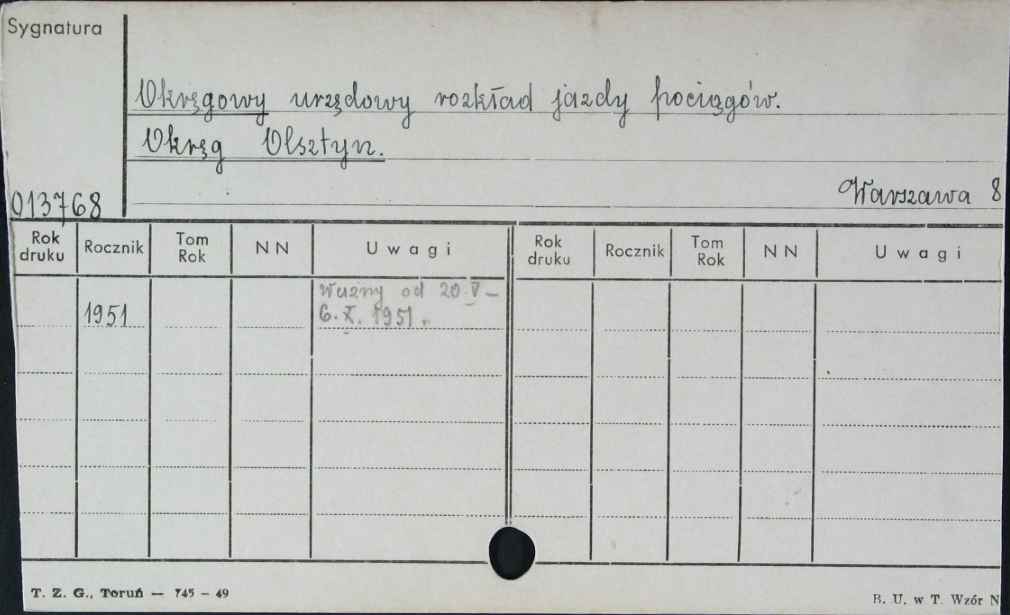 Sygnatura
Okręgowy urzędowy rozkład jazdy pociągów.
Okręg Olsztyn.
013768
Warszawa 8
Rok druku Rocznik Tom Rok NN Uwagi Rok druku Rocznik Tom Rok NN Uwagi
Ważny od 20 V –
1951 6. X. 1951.
T. Z. G., Toruń — 745 – 49
B. U. w T. Wzór N